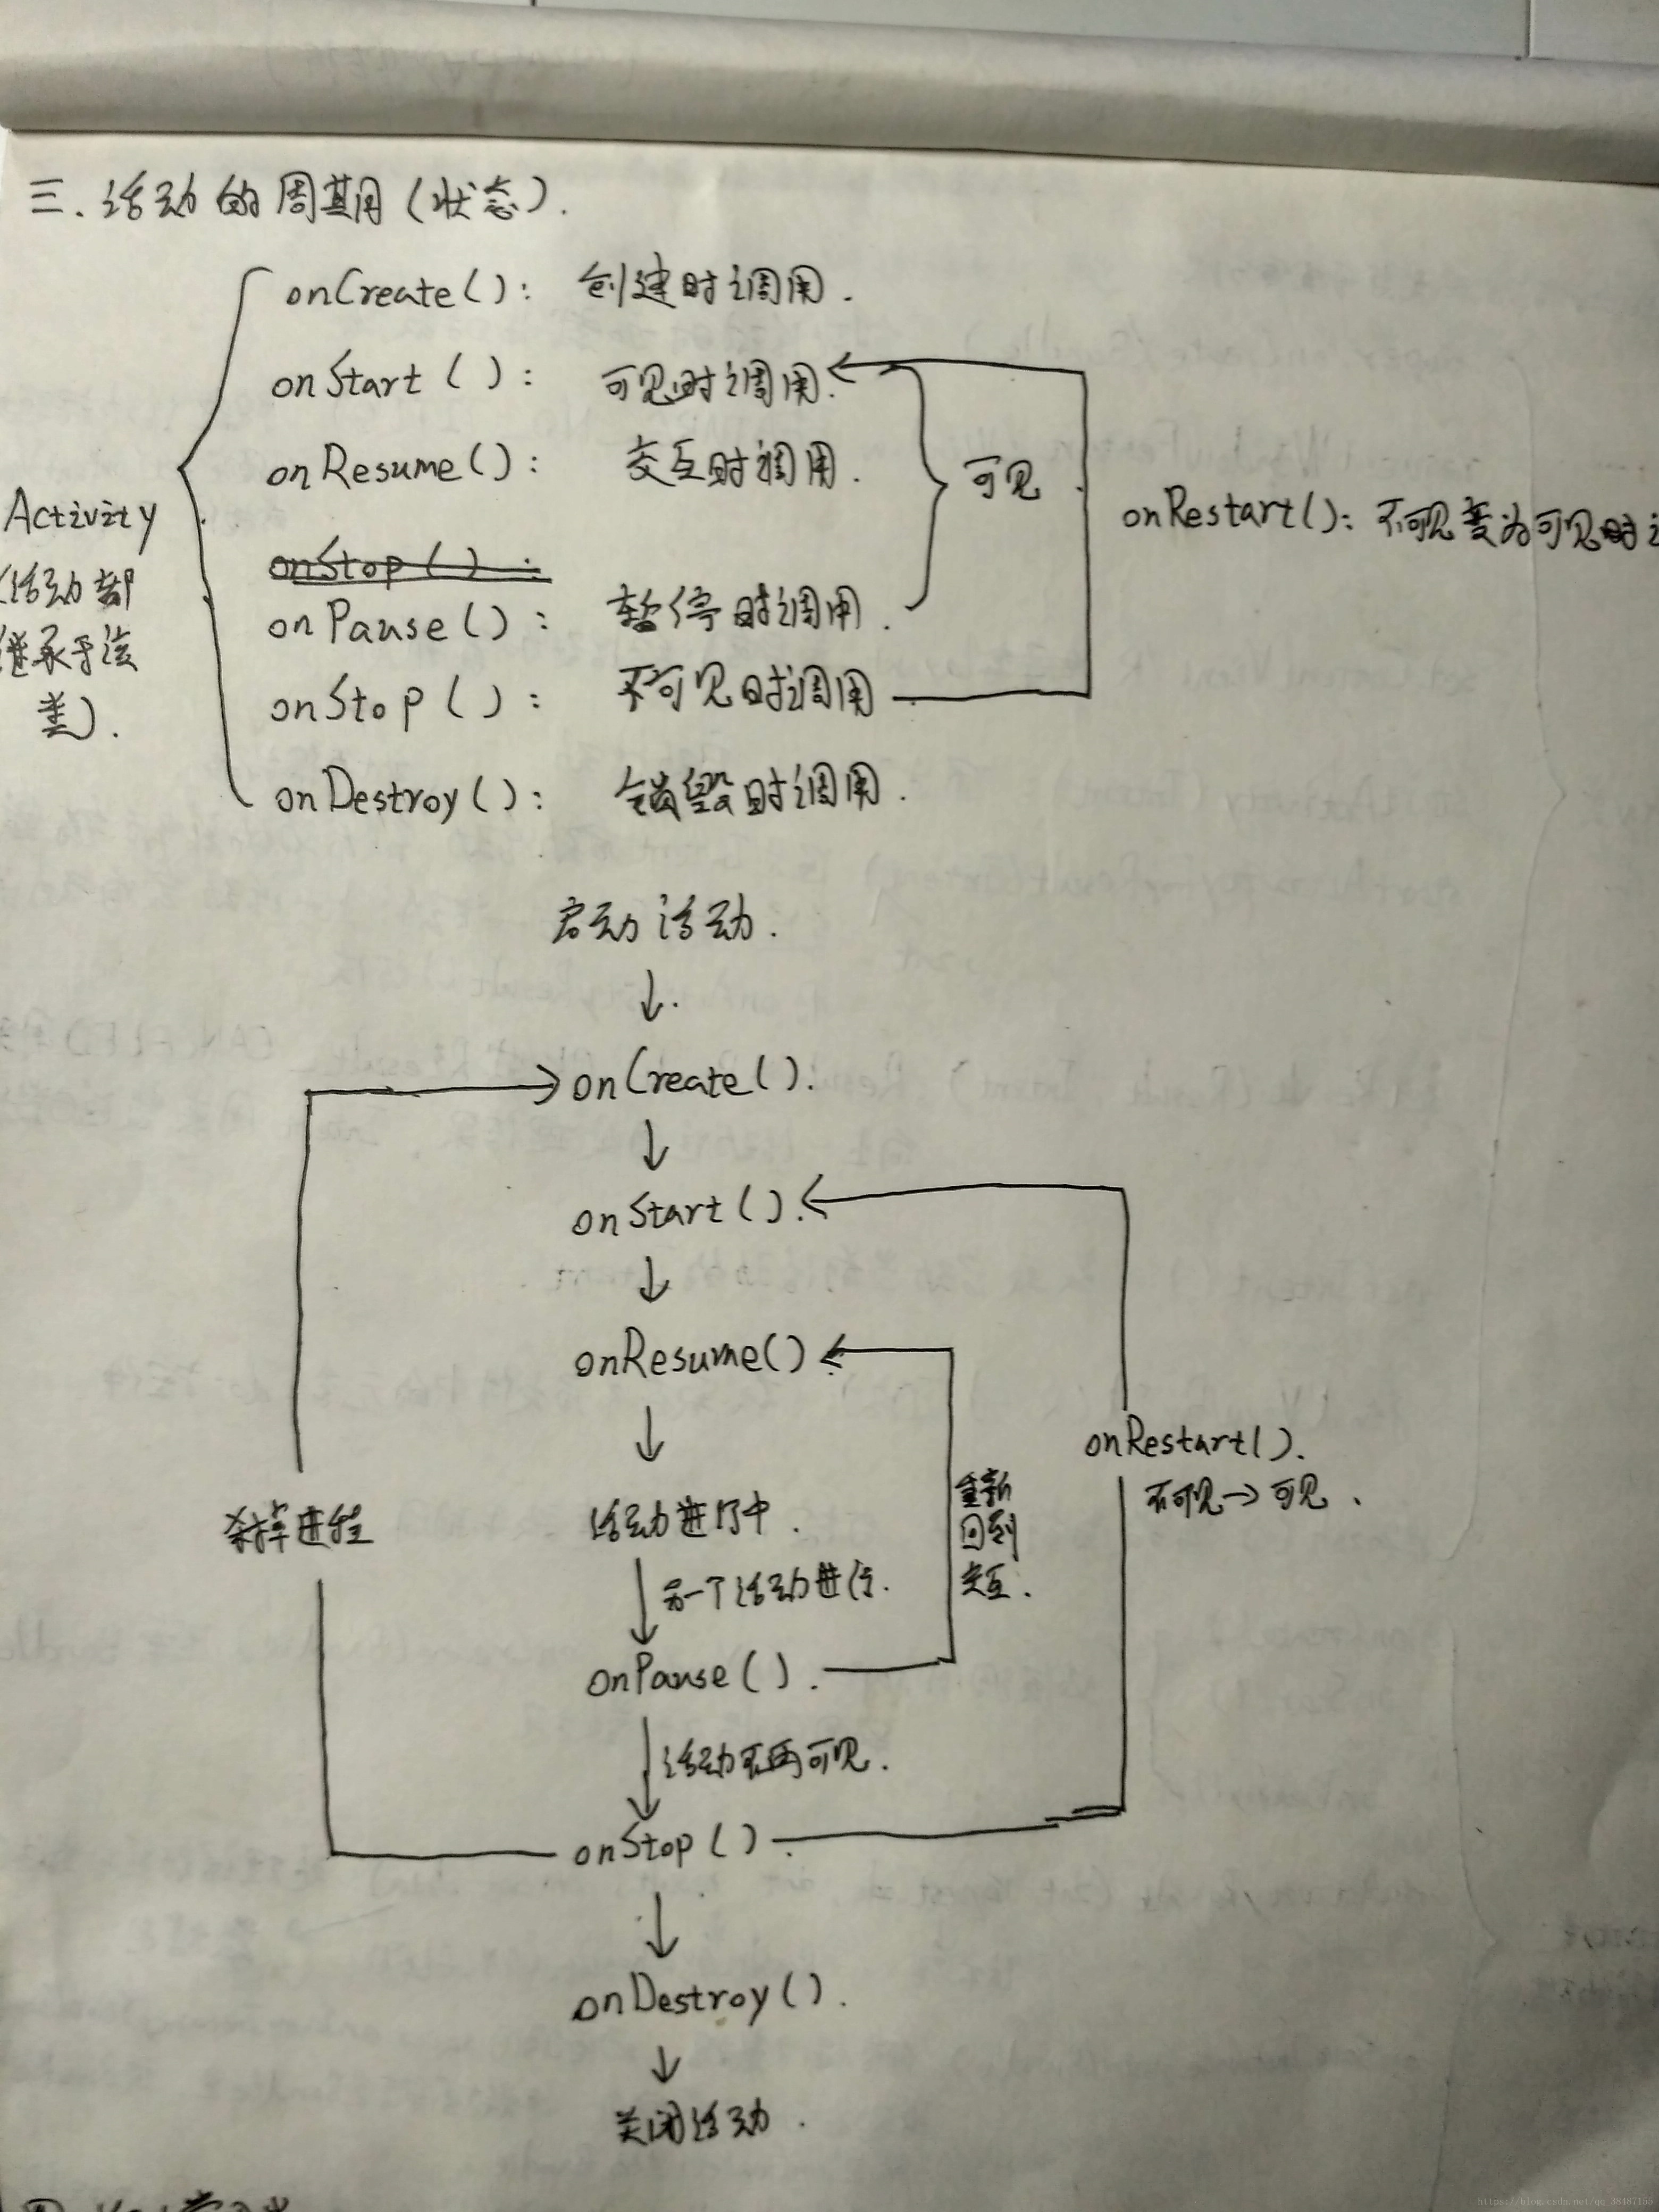 三.活动的周期(状态).
onCreate(): 创建时调用.
onStart(): 可见时调用.
onResume(): 交互时调用.
可见
onRestart(): 不可见变为可见时
Activity
(活动都
继承于该
类).
onStop():
onPause(): 暂停时调用.
onStop(): 不可见时调用
onDestroy(): 销毁时调用.
启动活动.
onCreate().
onStart().
onResume()
onRestart().
不可见→可见.
重新
回到
交互.
杀掉进程
活动进行中.
另一个活动进行.
onPause().
活动不再可见.
onStop().
onDestroy().
关闭活动.
https://blog.csdn.net/qq_38487155